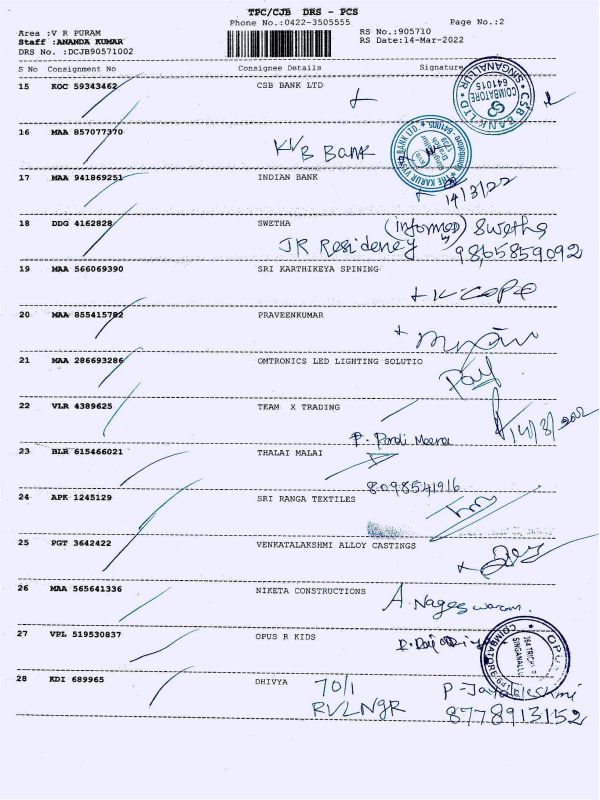 TPC/CJB DRS - PCS
Phone No.:0422-3505555 Page No.:2
Area :V R PURAM RS No.:905710
Staff :ANANDA KUMAR RS Date:14-Mar-2022
DRS No. :DCJB90571002
S No Consignment No Consignee Details Signature
15 KOC 59343462 CSB BANK LTD
CSB BANK LTD SINGANALLUR
COIMBATORE
641015
16 MAA 857077370 KVB Bank
THE KARUR VYSYA BANK LTD. Coimbatore 641005
17 MAA 941869251 INDIAN BANK
14/3/22
18 DDG 4162828 SWETHA (informed) Swetha
JR Residency 9865859092
19 MAA 566069390 SRI KARTHIKEYA SPINING
20 MAA 855415782 PRAVEENKUMAR
21 MAA 286693286 OMTRONICS LED LIGHTING SOLUTIO
22 VLR 4389625 TEAM X TRADING
23 BLR 615466021 THALAI MALAI
8098541916
24 APK 1245129 SRI RANGA TEXTILES
25 PGT 3642422 VENKATALAKSHMI ALLOY CASTINGS
26 MAA 565641336 NIKETA CONSTRUCTIONS A Nageswaran.
27 VPL 519530837 OPUS R KIDS
28 KDI 689965 DHIVYA 70/1
RVLNgR 8778913152